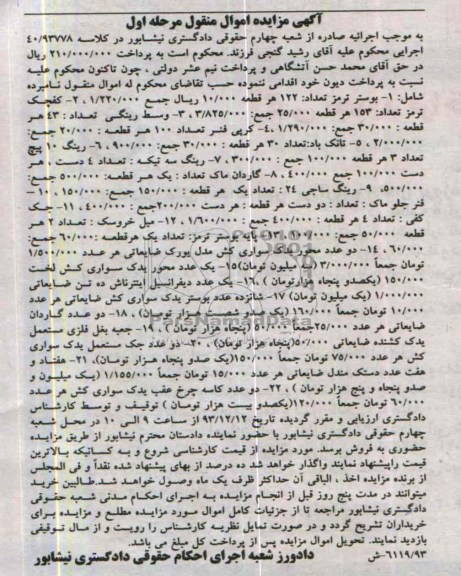 آگهی مزایده اموال منقول مرحله اول
به موجب اجرائیه صادره از شعبه چهارم حقوقی دادگستری نیشابور در کلاسه ۴۰/۹۳۷۷۸
اجرایی محکوم علیه آقای رشید گنجی فرزند. محکوم است به پرداخت ۲۱۰/۰۰۰/۰۰۰ ریال
در حق آقای محمد حسن آتشگاهی و پرداخت نیم عشر دولتی ، چون تاکنون محکوم علیه
نسبت به پرداخت دیون خود اقدامی ننموده حسب تقاضای محکوم له اموال منقول نامبرده
شامل: ۱- بوستر ترمز تعداد: ۱۲۲ هر قطعه ۱۰/۰۰۰ ریال جمع ۱/۲۲۰/۰۰۰ ، ۲- کفچک
ترمز تعداد: ۱۵۳ هر قطعه ۲۵/۰۰۰ جمع: ۳/۸۲۵/۰۰۰، ۳- وسط رینگی تعداد : ۴۳ هر
قطعه : ۳۰/۰۰۰ جمع: ۱/۲۹۰/۰۰۰ ،۴- کرپی فنر تعداد ۱۰۰ هر قطعه : ۲۰/۰۰۰ جمع:
۲/۰۰۰/۰۰۰ ، ۵- تانک باد:تعداد ۳۰ هر قطعه : ۳۰/۰۰۰ جمع: ۹۰۰/۰۰۰ ، ۶- رینگ ۱۰ پیچ
تعداد ۳ هر قطعه ۱۰۰/۰۰۰ جمع : ۳۰۰/۰۰۰ ، ۷- رینگ سه تیکه : تعداد ۴ دست هر
دست ۱۰۰/۰۰۰ جمع ۴۰۰/۰۰۰ ، ۸- گاردان ماک تعداد : یک هر قطعه: ۵۰۰/۰۰۰ جمع:
۵۰۰/۰۰۰، ۹- رینگ ساجی ۲۴ : تعداد یک هر قطعه : ۱۵۰/۰۰۰ جمع: ۱۵۰/۰۰۰ ، ۱۰-
فنر جلو ماک : تعداد : دو دست هر قطعه : هر دست ۲۰۰/۰۰۰جمع : ۴۰۰/۰۰۰ ، ۱۱- جک
کفی : تعداد ۴ هر قطعه : ۴۰۰/۰۰۰ جمع : ۱/۶۰۰/۰۰۰ ، ۱۲- میل خروسک : تعداد ۲ هر
قطعه ۵۰/۰۰۰ جمع: ۱۰۰/۰۰۰ ،۱۳- پایه بوستر ترمز: تعداد یک هرقطعه :۶۰/۰۰۰ جمع:
۶۰/۰۰۰ ، ۱۴- دو عدد محور یدک سواری کش مدل یورک ضایعاتی هر عدد ۱/۵۰۰/۰۰۰
تومان جمعاً ۳/۰۰۰/۰۰۰ (سه میلیون تومان)۱۵- یک عدد محور یدک سواری کش لخت
۱۵۰/۰۰۰ (یکصدو پنجاه هزارتومان) ،۱۶- یک عدد دیفرانسیل اینترناش ده تن ضایعاتی
۱/۰۰۰/۰۰۰ (یک میلیون تومان) ۱۷- شانزده عدد بوستر یدک سواری کش ضایعاتی هر عدد
۱۰/۰۰۰ تومان جمعاً ۱۶۰/۰۰۰ (یک صدو شصت هزار تومان) ، ۱۸- دو عدد گاردان
ضایعاتی هر عدد ۲۵/۰۰۰جمعاً ۵۰/۰۰۰ (پنجاه هزار تومان) ، ۱۹- جعبه بغل فلزی مستعمل
یدک کشنده ضایعاتی ۵۰/۰۰۰(پنجاه هزار تومان) ، ۲۰- دو عدد جک مستعمل یدک سواری
کش هر عدد ۷۵/۰۰۰ تومان جمعاً ۱۵۰/۰۰۰(یک صدو پنجاه هزار تومان)، ۲۱- هفتاد و
هفت عدد دستک مندل ضایعاتی هر عدد ۱۵/۰۰۰ تومان جمعاً ۱/۱۵۵/۰۰۰ (یک میلیون و
صدو پنجاه و پنج هزار تومان) ، ۲۲- دو عدد کاسه چرخ عقب یدک سواری کش هر عدد
۶۰/۰۰۰ تومان جمعاً ۱۲۰/۰۰۰(یکصدو بیست هزار تومان ) توقیف و توسط کارشناس
دادگستری ارزیابی و مقرر گردیده تاریخ ۹۳/۱۲/۱۲ از ساعت ۹ الی ۱۰ در محل شعبه
چهارم حقوقی دادگستری نیشابور با حضور نماینده دادستان محترم نیشابور از طریق مزایده
حضوری به فروش برسد. مورد مزایده از قیمت کارشناسی شروع و به کسانیکه بالاترین
قیمت راپیشنهاد نمایند واگذار خواهد شد ده درصد از بهای پیشنهاد شده نقداً و فی المجلس
از برنده مزایده اخذ ، الباقی آن حداکثر ظرف یک ماه وصول خواهد شد.طالبین خرید
میتوانند در مدت پنج روز قبل از انجام مزایده به اجرای احکام مدنی شعبه حقوقی
دادگستری نیشابور مراجعه تا از جزئیات کامل اموال مورد مزایده مطلع و مزایده برای
خریداران تشریح گردد و در صورت تمایل نظریه کارشناس را رویت و از مال توقیفی
بازدید نمایند. تحویل اموال مزایده پس از پرداخت کل مبلغ می باشد.
۶۱۱۹/۹۳-ش دادورز شعبه اجرای احکام حقوقی دادگستری نیشابور